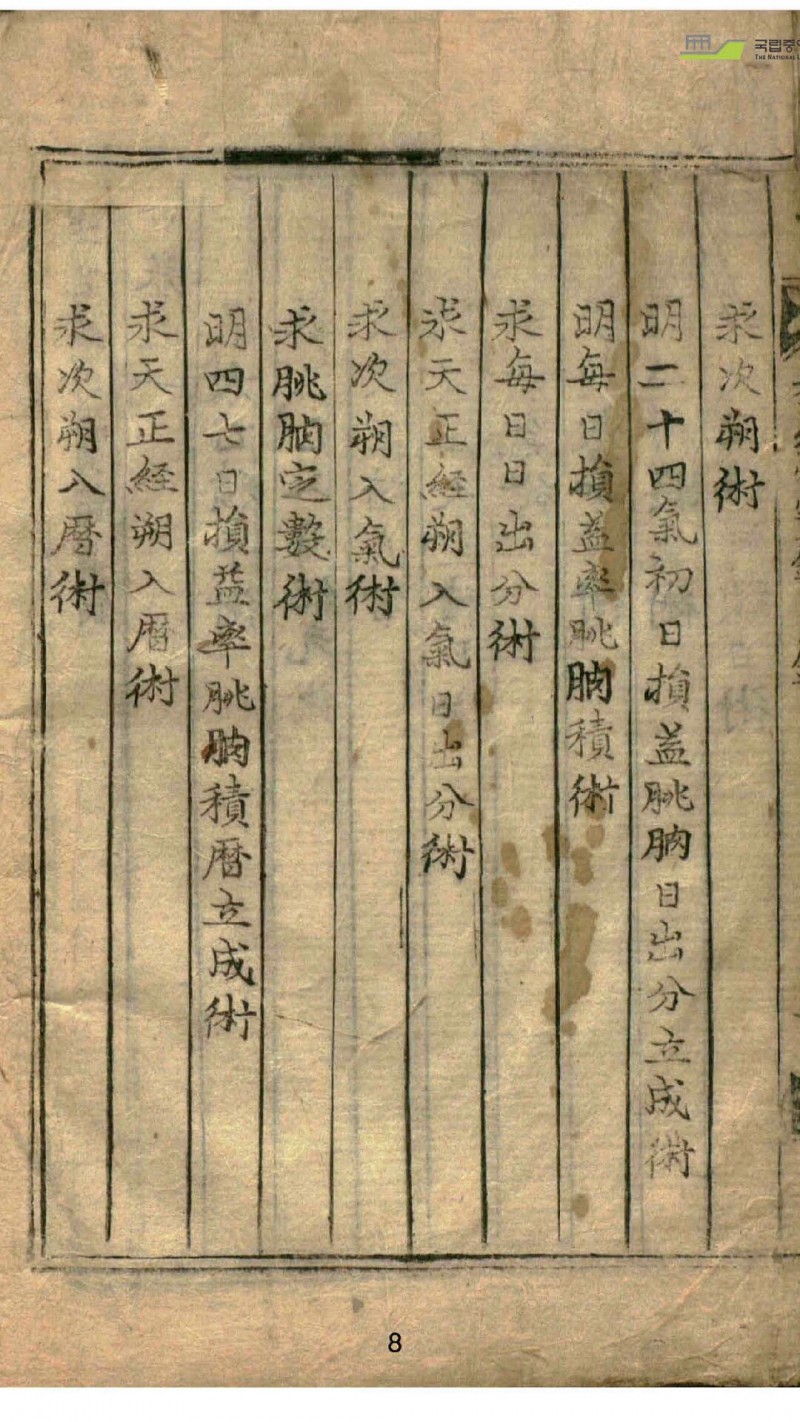 국립중앙
THE NATIONAL L
求次朔術
明二十四氣初日損益朓朒日出分立成術
明每日損益率朓朒積術
求每日日出分術
求天正經朔入氣日出分術
求次朔入氣術
求朓朒定數術
明四七日損益率朓朒積曆立成術
求天正經朔入曆術
求次朔入曆術
8